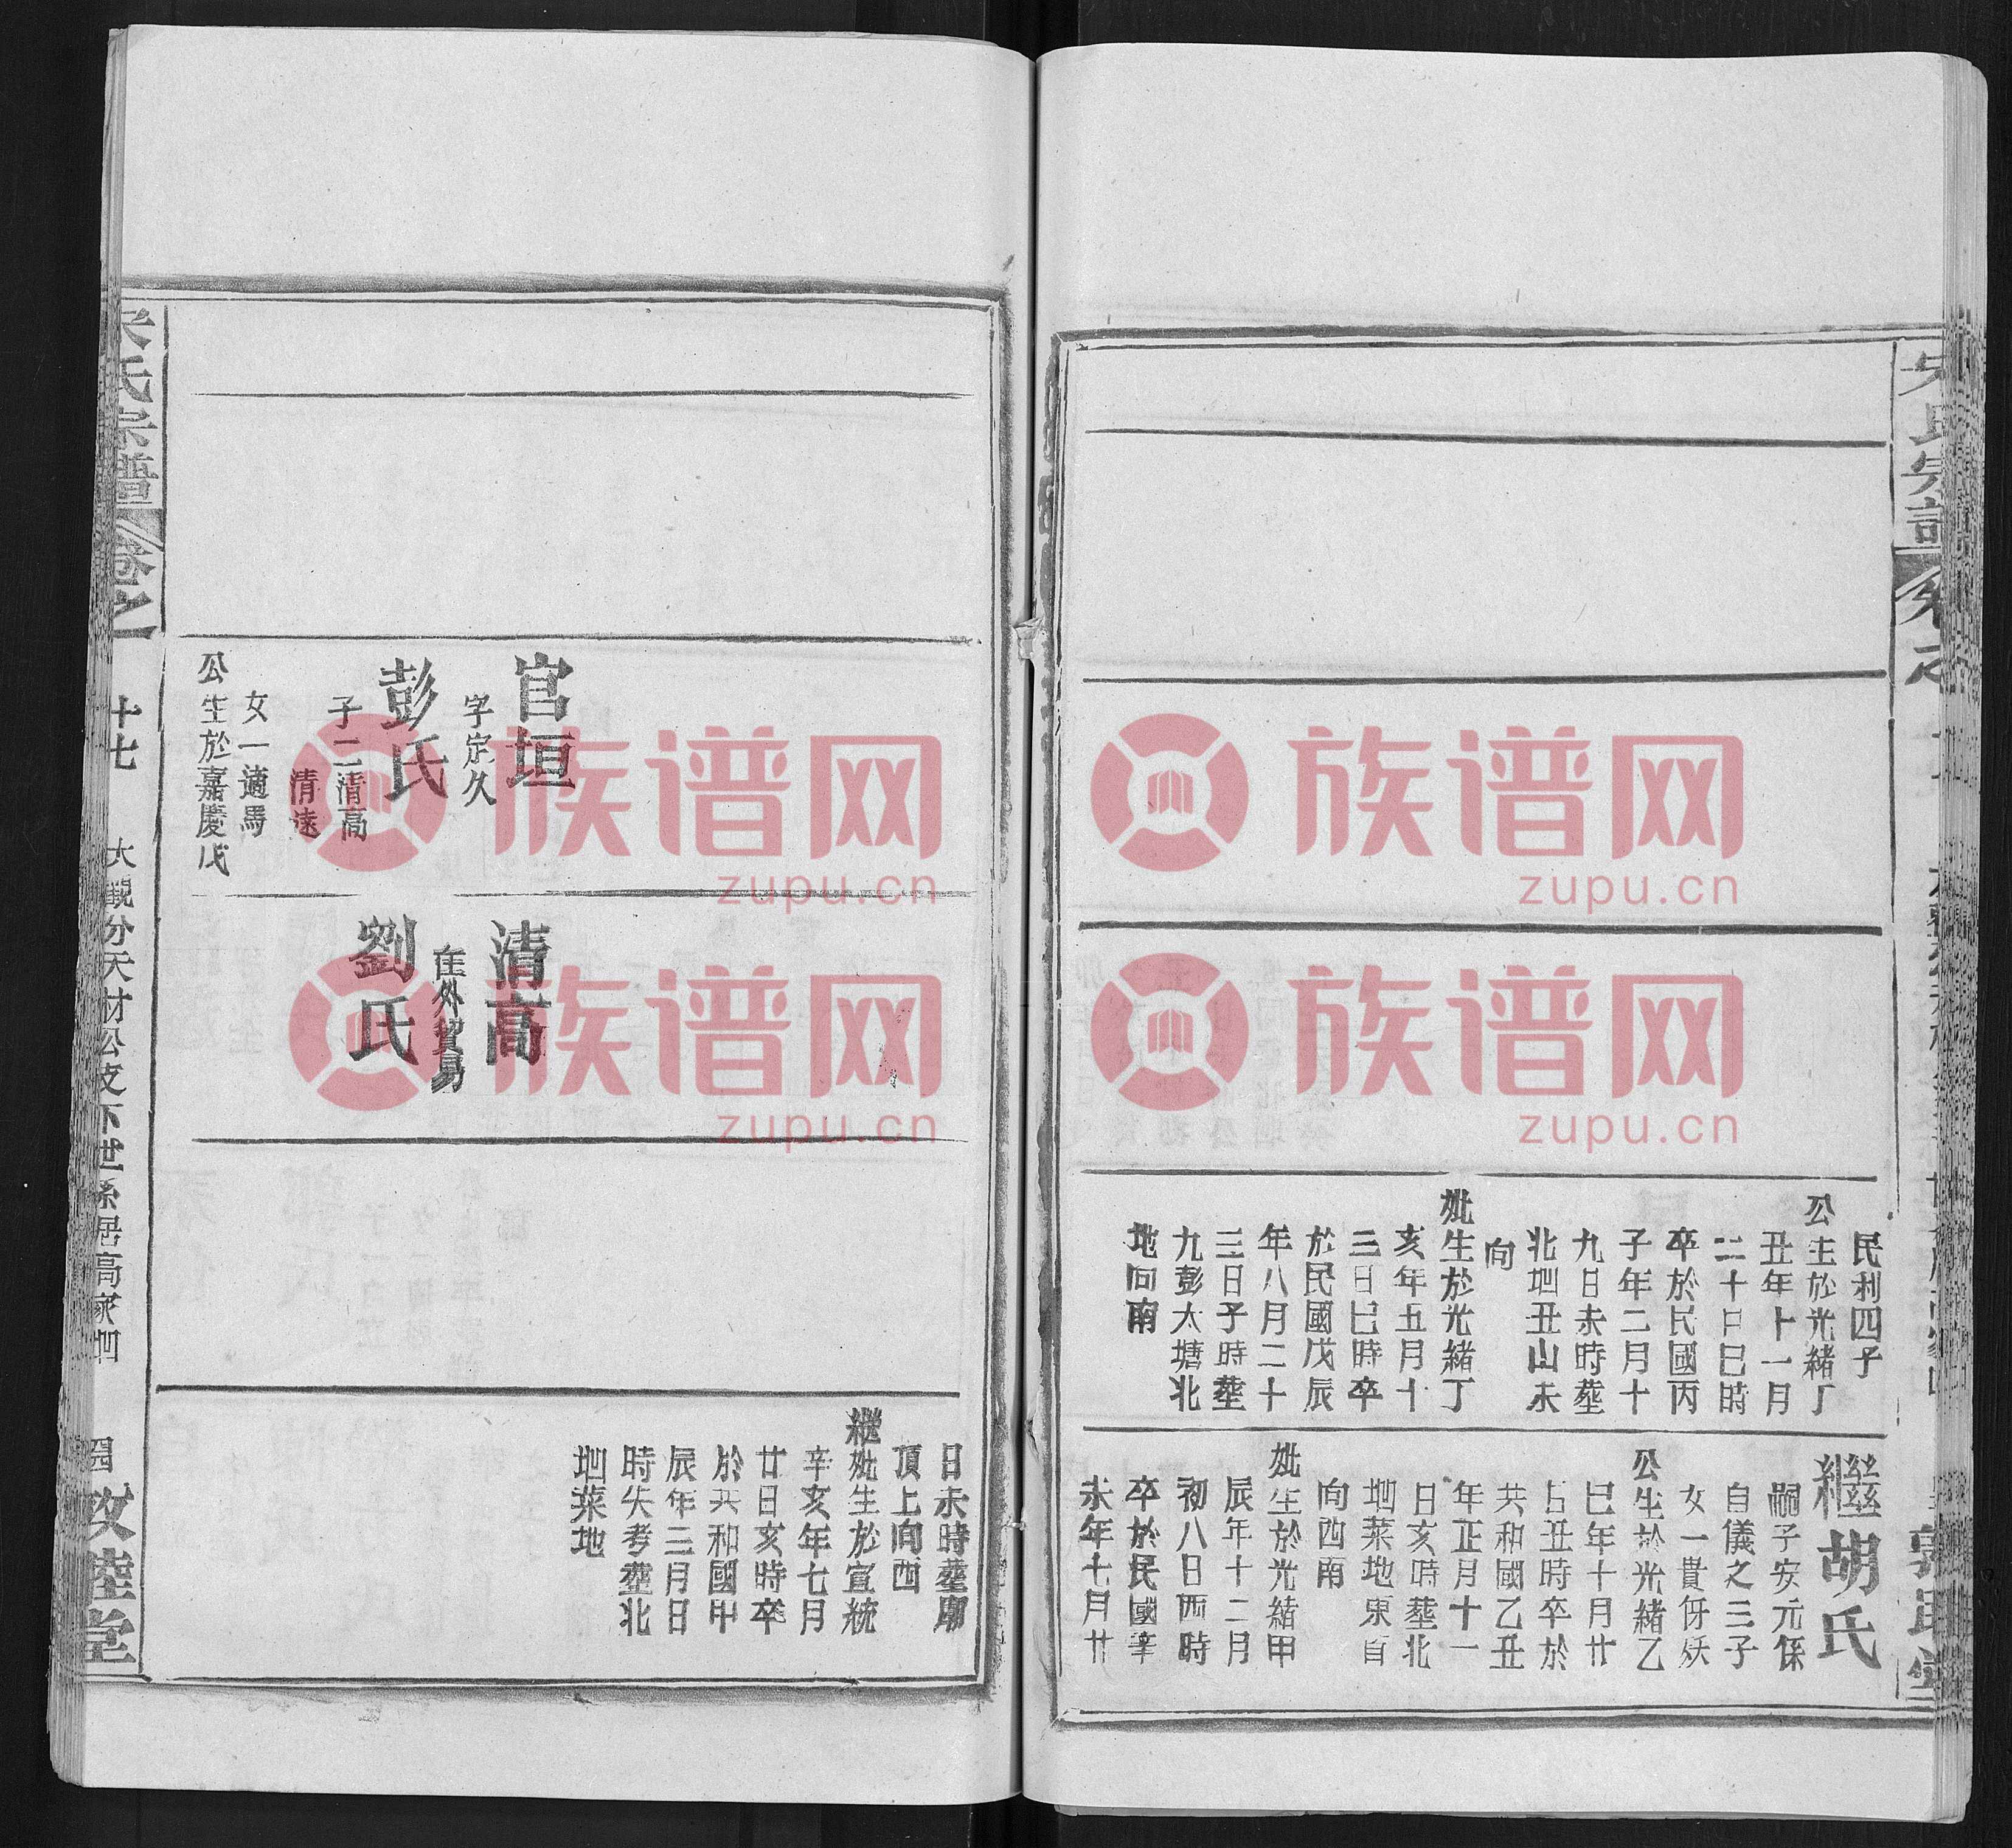 民利四子
公生於光緒丁
丑年十一月
二十日巳時
卒於民國丙
子年二月十
九日未時塟
北地丑山未
向
妣生於光緒丁
亥年五月十
三日巳時卒
於民國戊辰
年八月二十
三日子時塟
九彭大塘北
地向南
繼胡氏
嗣子安元係
自儀之三子
女一貴伢妖
公生於光緒乙
巳年十月廿
日丑時卒於
共和國乙丑
年正月十一
日亥時塟北
地菜地東首
向西南
妣生於光緒甲
辰年十二月
初八日酉時
卒於民國辛
未年七月廿
官垣
字定久
彭氏
子二清高
清遠
女一適馬
公生於嘉慶戊
清高
在外貿易
劉氏
日未時塟廟
頂上向西
繼妣生於宣統
辛亥年七月
廿日亥時卒
於共和國甲
辰年三月日
時失考塟北
地菜地
氏宗譜
卷之
十七
大觀分天材公支下世系居高家
敦睦堂
族谱网
zupu.cn
族谱网
zupu.cn
族谱网
zupu.cn
族谱网
zupu.cn